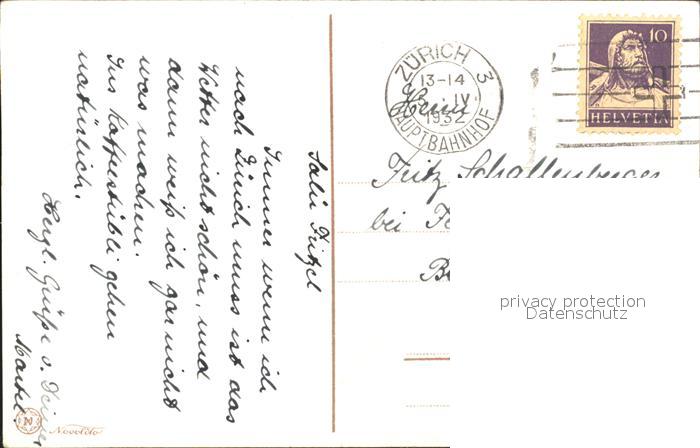 Salü Fritzel
Immer wenn ich
nach Zürich muss ist das
Wetter nicht schön, und
dann weiß ich gar nicht
was machen.
Ins Kaffeestübli gehen
natürlich.
Herzl. Grüße v. Deiner
ZÜRICH 3
13-14
IV.
1932
HAUPTBAHNHOF
10
HELVETIA
Herrn
Fritz Schallenberger
bei
privacy protection
Datenschutz
N
Novolito